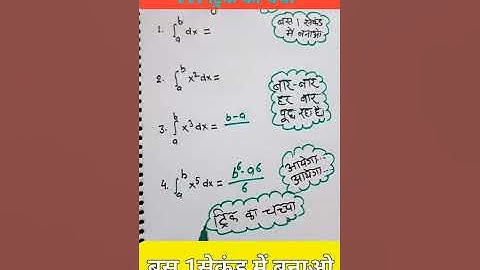 ट्रिक का चच्चा
1. ∫ₐᵇ dx =
बस 1 सेकंड
में बनाओ
2. ∫ₐᵇ x² dx =
बार-बार
हर बार
पूछ रहा है
3. ∫ₐᵇ x³ dx = b-a
4. ∫ₐᵇ x⁵ dx = b⁶-a⁶/6
आयेगा...
आयेगा...
ट्रिक का चच्चा
बस 1सेकंड में बनाओ